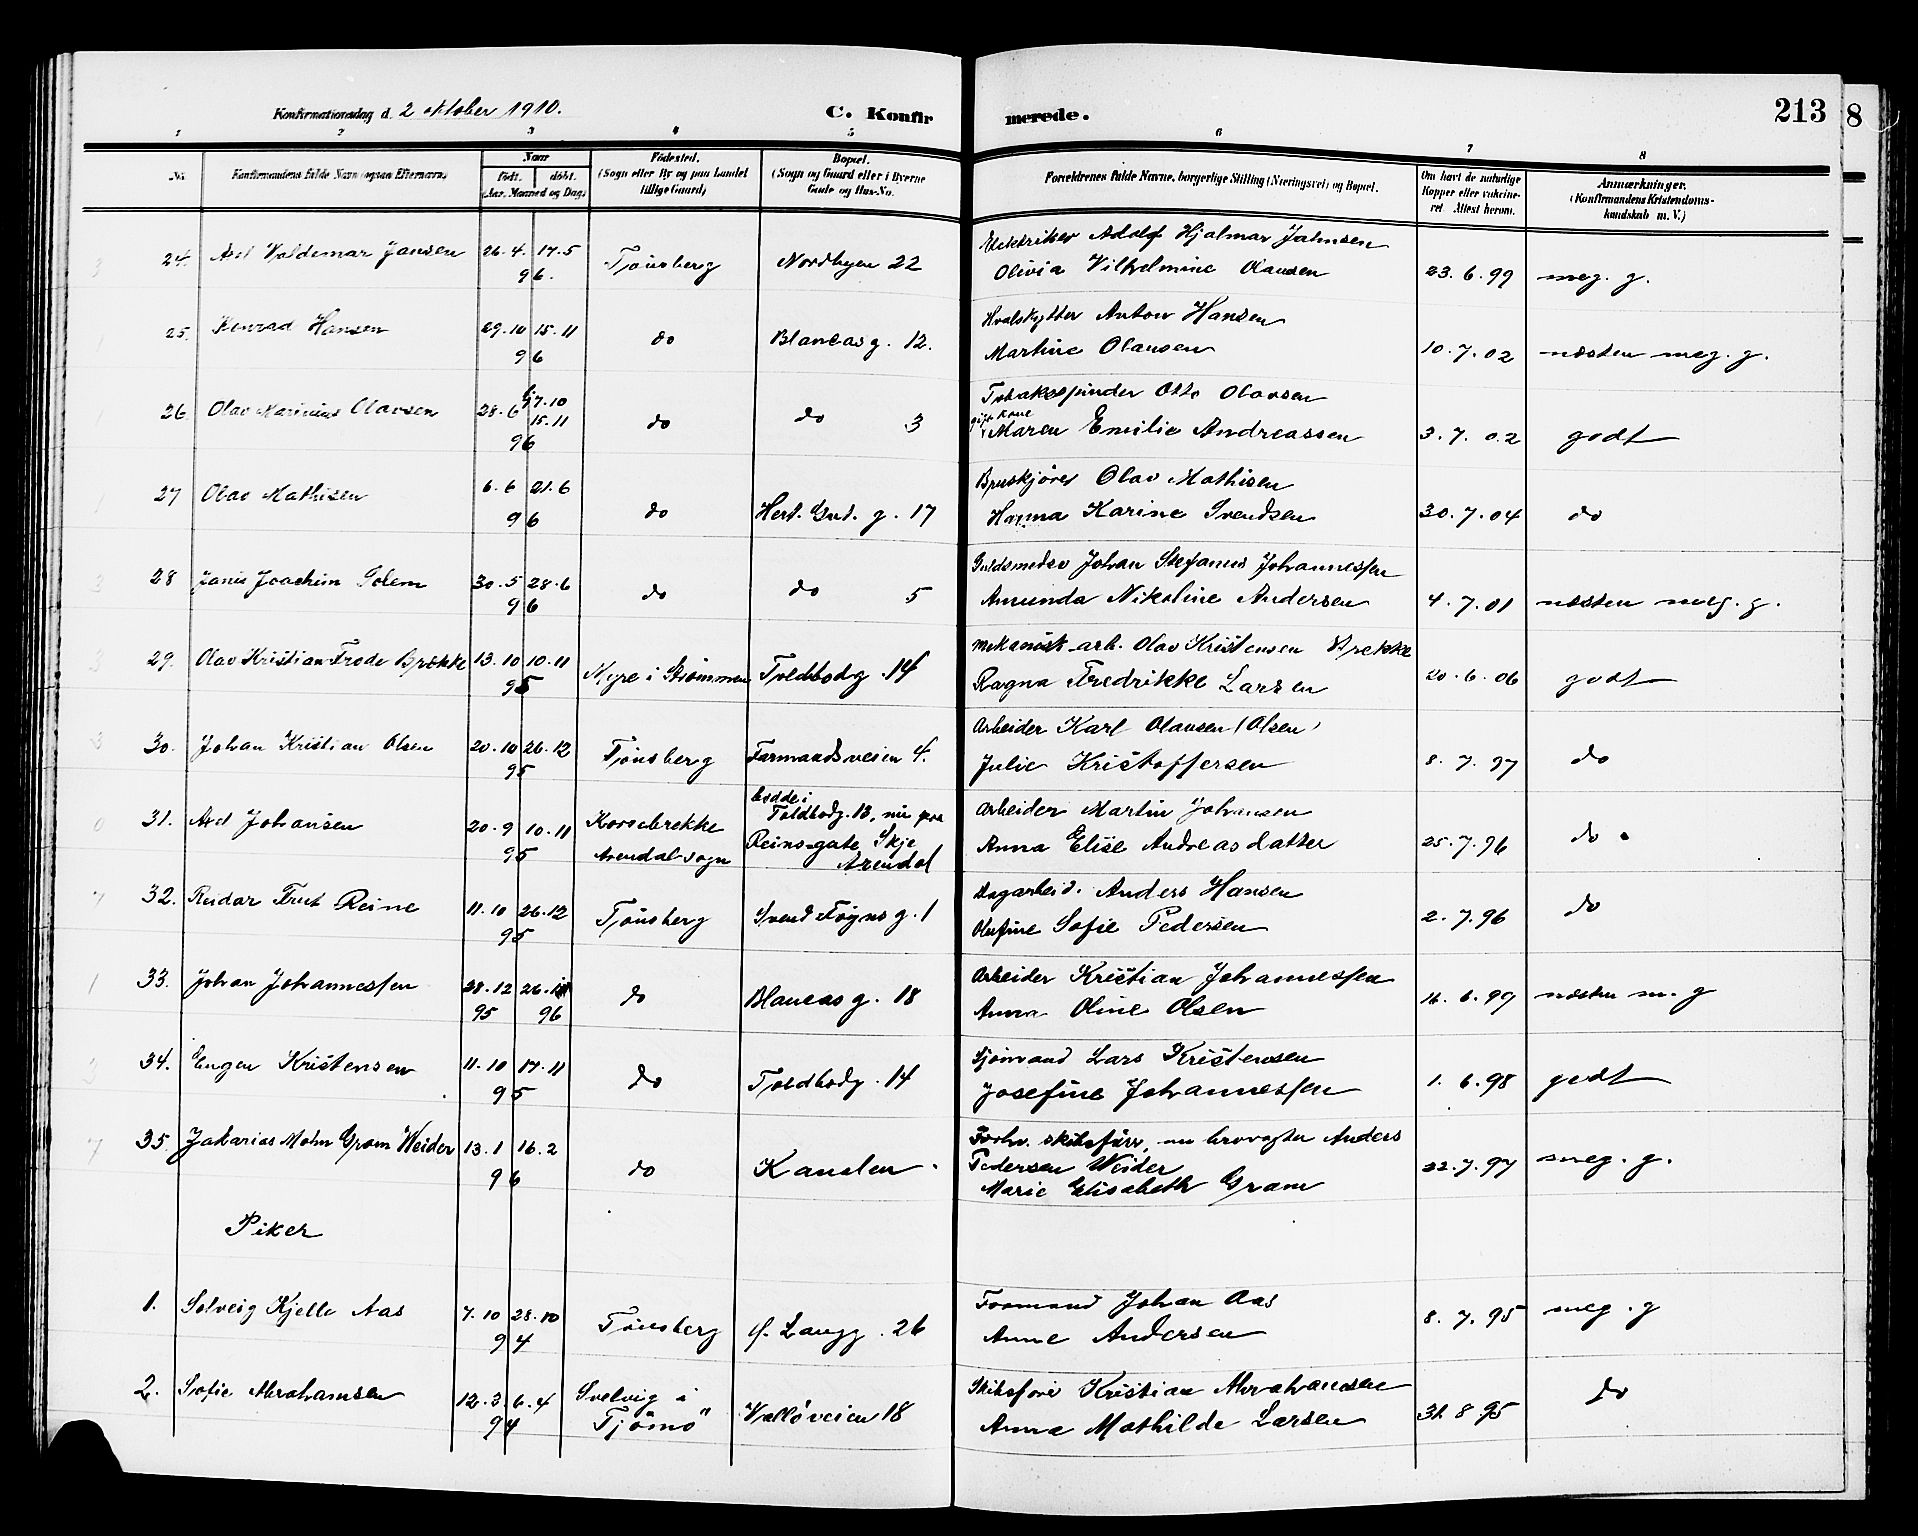 Konfirmationsdag d. 2 oktober 1910. C. Konfir merede. 213 8
1 2 3 4 5 6 7 8
No. Konfirmandens fulde Navn (ogsaa Efternavn). Naar Født. døbt. (Aar, Maaned og Dag) Fødested. (Sogn eller By og paa Landet tillige Gaard) Bopæl. (Sogn og Gaard eller i Byerne Gade og Hus-No. Forældrenes fulde Navne, borgerlige Stilling (Næringsvei) og Bopæl. Om havt de naturlige Kopper eller vakcineret. Attest herom. Anmærkninger. (Konfirmandens Kristendomskundskab m. V.)
24. Axel Valdemar Jansen 26.4. 17.5 96. Tönsberg Nordbyen 22 Elektriker Adolf Hjalmar Jahnsen
Olivia Vilhelmine Olausen 23.6.99 meg. g.
25. Konrad Hansen 29.10 15.11 96 do Blancas g. 12. Hvalskytter Anton Hansen
Martine Olausen 10.7.02 næsten meg. g.
26. Olav Marinius Olavsen 28.6 15.11 96 do do 3 Tobakspinder Otto Olavsen
gift kone Maren Emilie Andreassen 3.7.02 godt
27 Olav Mathisen 6.6 21.6 96 do Hert. Gut. g. 17 Bruskjörer Olav Mathisen
Hanna Karine Svendsen 30.7.04 do
28 Janis Joachim Solem 30.5 28.6 96 do do 5 Guldsmedsv Johan Stefanus Johannessen
Amunda Nikoline Andersen 4.7.01 næsten meg. g.
29. Olav Kristian Frode Brække 13.10 10.11 95 Myre i Strömmen Toldbodg. 14 mekanisk arb. Olav Kristensen Brekke
Ragna Fredrikke Larsen 20.6.06 godt
30. Johan Kristian Olsen 20.10 26.12 95 Tönsberg Farmandsveien 4. Arbeider Karl Olausen (Olsen)
Julie Kristoffersen 8.7.97 do
31. Axel Johansen 20.9 10.11 95 Korsebrekke Arendal sogn bodde i Toldbodg. 13, nu paa Reins-gate, Skje Arendal Arbeider Martin Johansen
Anna Elise Andreasdatter 25.7.96 do
32. Reidar Reine 11.10 26.12 95 Tönsberg Svend Foyns g. 1 Dagarbeid. Anders Hansen
Olufine Sofie Pedersen 2.7.96 do
33. Johan Johannessen 28.12 95 26. 96 do Blancas g. 18 Arbeider Kristian Johannessen
Anna Oline Olsen 16.6.99 næsten m. g
34. Eugen Kristensen 11.10 17.11 95 do Toldbodg. 14 Sjömand Lars Kristensen
Josefine Johannessen 1.6.98 godt
35. Zakarias Mohn Gram Weider 13.1 16.2 96 do Kanalen Forhv. skibsförer, nu brovogter Anders
Pedersen Weider
Marie Elisabeth Gram 22.7.97 meg. g.
Piker
1. Solveig Kjelle Aas 7.10 28.10 94 Tönsberg Langg. 26 Formand Johan Aas
Anne Andersen 8.7.95 meg. g
2. Sofie Abrahamsen 12.3 6.4 94 Svelvig i Tjömö Vallöveien 18 Skibsförer Kristian Abrahamsen
Anna Mathilde Larsen 31.8.95 do